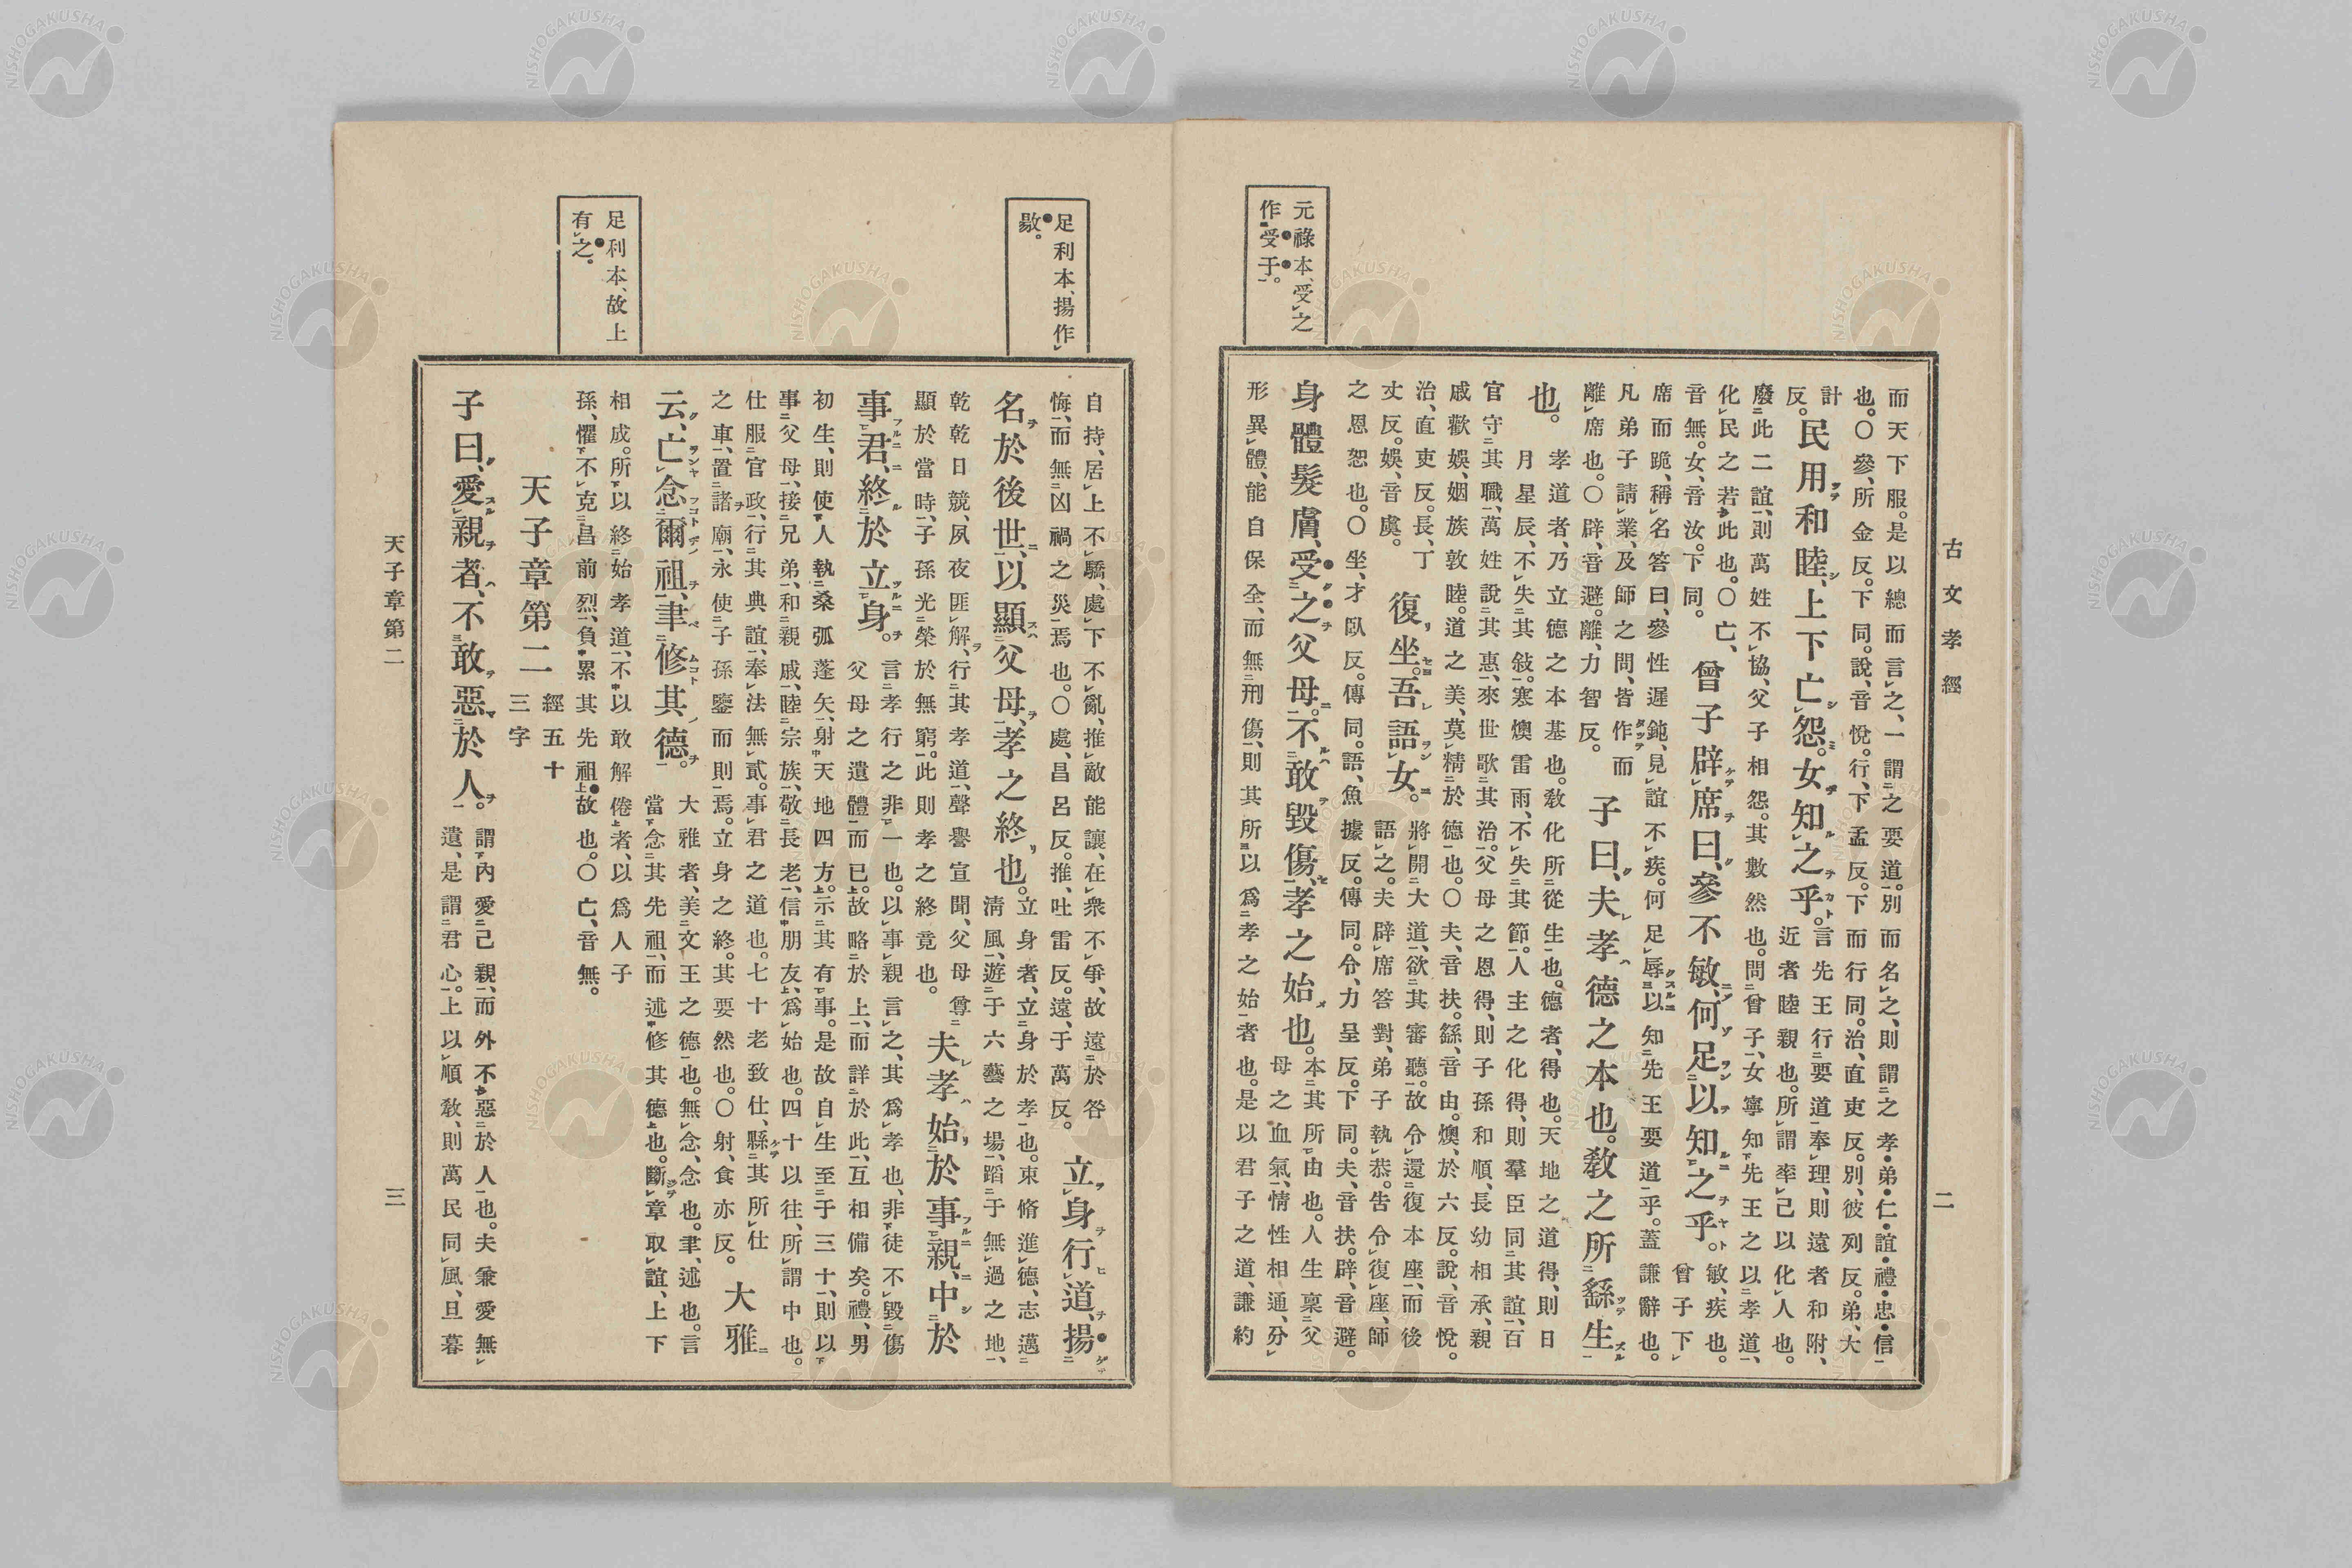 古文孝經
二
元祿本、受之
作受于。
而天下服。是以總而言之、一謂之要道。別而名之、則謂之孝・弟・仁・誼・禮・忠・信
也。○參、所金反。下同。說、音悅。行、下孟反。下而行同。治、直吏反。別、彼列反。弟、大
計
反。
民用和睦、上下亡怨。女知之乎。
言先王行要道奉理、則遠者和附、
近者睦親也。所謂率己以化人也。
廢此二誼、則萬姓不協、父子相怨。其數然也。問曾子、女寧知先王之以孝道、
化民之若此也。○亡、
音無。女、音汝。下同。
曾子辟席曰、參不敏、何足以知之乎。
敏、疾也。
曾子下
席而跪、稱名答曰、參性遲鈍、見誼不疾。何足辱以知先王要道乎。蓋謙辭也。
凡弟子請業、及師之問、皆作而
離席也。○辟、音避。離、力智反。
子曰、夫孝德之本也。敎之所繇生
也。
孝道者、乃立德之本基也。敎化所從生也。德者、得也。天地之道得、則日
月星辰、不失其敍。寒燠雷雨、不失其節。人主之化得、則羣臣同其誼、百
官守其職、萬姓說其惠、來世歌其治。父母之恩得、則子孫和順、長幼相承、親
戚歡娛、姻族敦睦。道之美、莫精於德也。○夫、音扶。繇、音由。燠、於六反。說、音悅。
治、直吏反。長、丁
丈反。娛、音虞。
復坐。吾語女。
將開大道、欲其審聽。故令還復本座、而後
語之。夫辟席答對、弟子執恭。告令復座、師
之恩恕也。○坐、才臥反。傳同。語、魚據反。傳同。令、力呈反。下同。夫、音扶。辟、音避。
身體髮膚、受之父母。不敢毀傷、孝之始也。
本其所由也。人生稟父
母之血氣、情性相通、分
形異體、能自保全、而無刑傷、則其所以爲孝之始者也。是以君子之道、謙約
足利本、揚作
敭。
足利本、故上
有之。
自持、居上不驕、處下不亂、推敵能讓、在衆不爭、故遠於咎
悔、而無凶禍之災焉也。○處、昌呂反。推、吐雷反。遠、于萬反。
立身行道、揚
名於後世、以顯父母、孝之終也。
立身者、立身於孝也。束脩進德、志邁
淸風、遊于六藝之場、蹈于無過之地、
乾乾日競、夙夜匪解、行其孝道、聲譽宣聞、父母尊
顯於當時、子孫光榮於無窮。此則孝之終竟也。
夫孝、始於事親、中於
事君、終於立身。
言孝行之非一也。以事親言之、其爲孝也、非徒不毀傷
父母之遺體而已。故略於上、而詳於此、互相備矣。禮、男
初生、則使人執桑弧蓬矢、射天地四方。示其有事。是故自生至于三十、則以
事父母、接兄弟、和親戚、睦宗族、敬長老、信朋友、爲始也。四十以往、所謂中也。
仕服官政、行其典誼、奉法無貳。事君之道也。七十老致仕、縣其所仕
之車、置諸廟、永使子孫鑒而則焉。立身之終。其要然也。○射、食亦反。
大雅
云、亡念爾祖、聿修其德。
大雅者、美文王之德也。無念、念也。聿、述也。言
當念其先祖、而述修其德也。斷章取誼、上下
相成。所以終始孝道、不以敢解倦者、以爲人子
孫、懼不克昌前烈、負累其先祖故也。○亡、音無。
天子章第二
經五十
三字
子曰、愛親者、不敢惡於人。
謂內愛己親、而外不惡於人也。夫兼愛無
遺、是謂君心。上以順敎、則萬民同風、旦暮
天子章第二
三